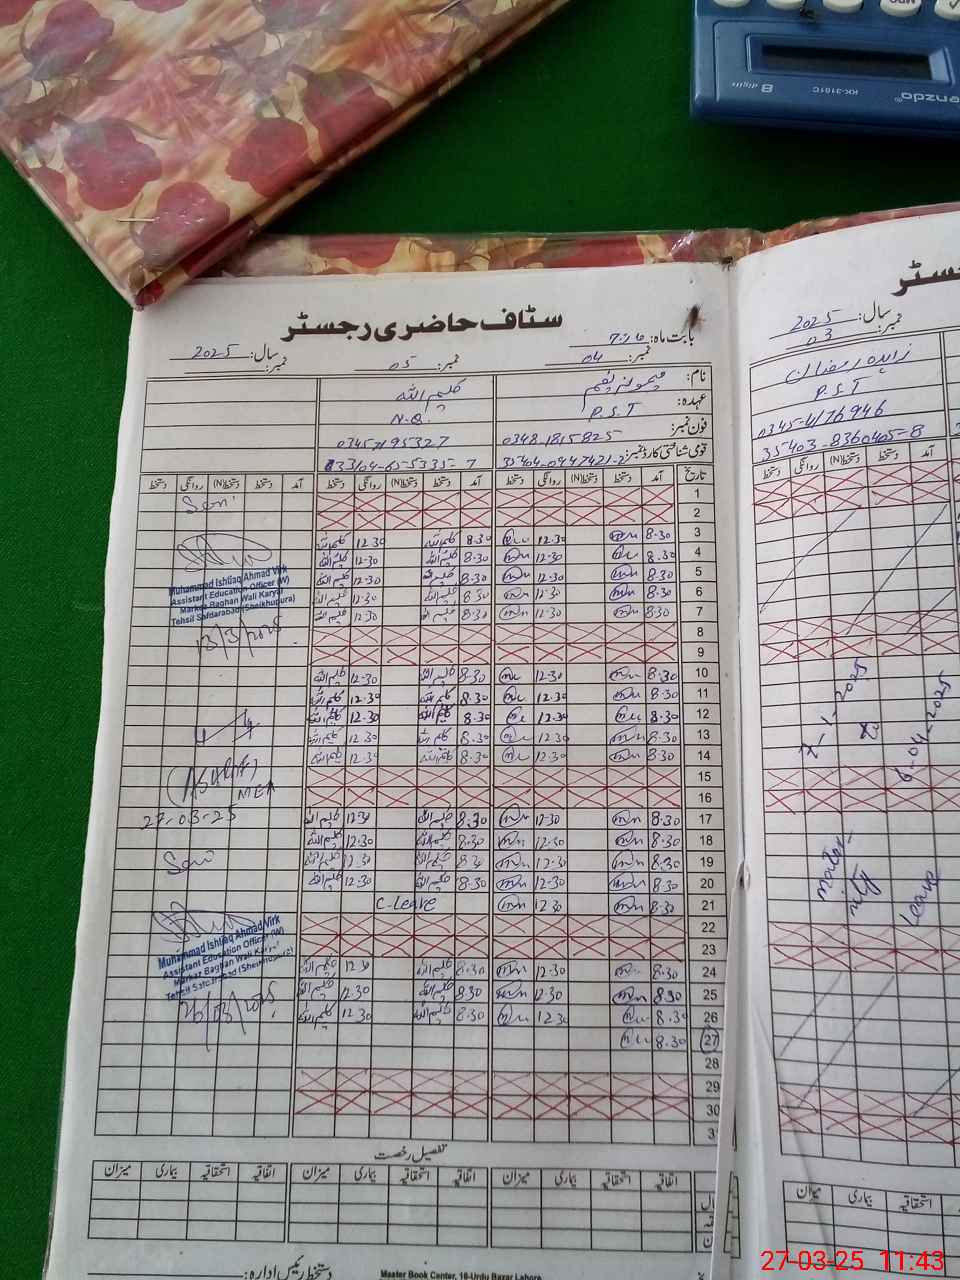 enzdo
KK-3181C
8 digits
سٹاف حاضری رجسٹر
بابت ماہ: مارچ سال: 2025
نمبر: 04 نمبر: 05 نمبر:
نام: کلیم اللہ
عہدہ: P.S.T N.Q.
فون نمبر: 0348-1815825 03457195327
قومی شناختی کارڈ نمبر: 35404-0447421-2
تاریخ آمد دستخط دستخط(N) روانگی دستخط آمد دستخط دستخط(N) روانگی دستخط آمد دستخط دستخط(N) روانگی دستخط
1
2
3 8.30 12.30 8.30 کلیم اللہ 12.30 کلیم اللہ
4 8.30 12-30 8.30 کلیم اللہ 12-30 کلیم اللہ
5 8.30 12-30 8.30 کلیم اللہ 12-30 کلیم اللہ
6 8.30 12-30 8.30 کلیم اللہ 12-30 کلیم اللہ
7 8.30 12-30 8.30 کلیم اللہ 12-30 کلیم اللہ
8
9
10 8.30 12-30 8-30 کلیم اللہ 12-30 کلیم اللہ
11 8.30 12.30 8.30 کلیم اللہ 12.30 کلیم اللہ
12 8.30 12.30 8.30 کلیم اللہ 12.30 کلیم اللہ
13 8.30 12.30 8.30 کلیم اللہ 12-30 کلیم اللہ
14 8.30 12.30 8.30 کلیم اللہ 12.30 کلیم اللہ
15
16
17 8.30 12-30 8.30 کلیم اللہ 12-30 کلیم اللہ
18 8.30 12-30 8.30 کلیم اللہ 12.30 کلیم اللہ
19 8.30 12.30 8.30 کلیم اللہ 12.30 کلیم اللہ
20 8.30 12-30 8.30 کلیم اللہ 12.30 کلیم اللہ
21 8.30 12.30 C-leave
22
23
24 8.30 12.30 8.30 کلیم اللہ 12.30 کلیم اللہ
25 8.30 12.30 8.30 کلیم اللہ 12.30 کلیم اللہ
26 8.30 12.30 8.30 کلیم اللہ 12.30 کلیم اللہ
27 8.30
28
29
30
3
Muhammad Ishtiaq Ahmad Virk
Assistant Education Officer (W)
Markaz Baghan Wali Karyal
Tehsil Safdarabad (Sheikhupura)
13/3/2025
MEA
27-03-25
Muhammad Ishtiaq Ahmad Virk
Assistant Education Officer (W)
Markaz Baghan Wali Karyal
Tehsil Safdarabad (Sheikhupura)
26/03/2025
تفصیل رخصت
اتفاقیہ استحقاقیہ بیماری میزان اتفاقیہ استحقاقیہ بیماری میزان اتفاقیہ استحقاقیہ بیماری میزان
دستخط رئیس ادارہ:
Master Book Center, 16-Urdu Bazar Lahore
سٹر
سال: 2025
03
زاہدہ رمضان
P.S.T
0345-4176946
35403-8360405-8
آمد دستخط دستخط(N) روانگی دستخط
6-04-2025
leave
استحقاقیہ بیماری میزان
27-03-25 11:43